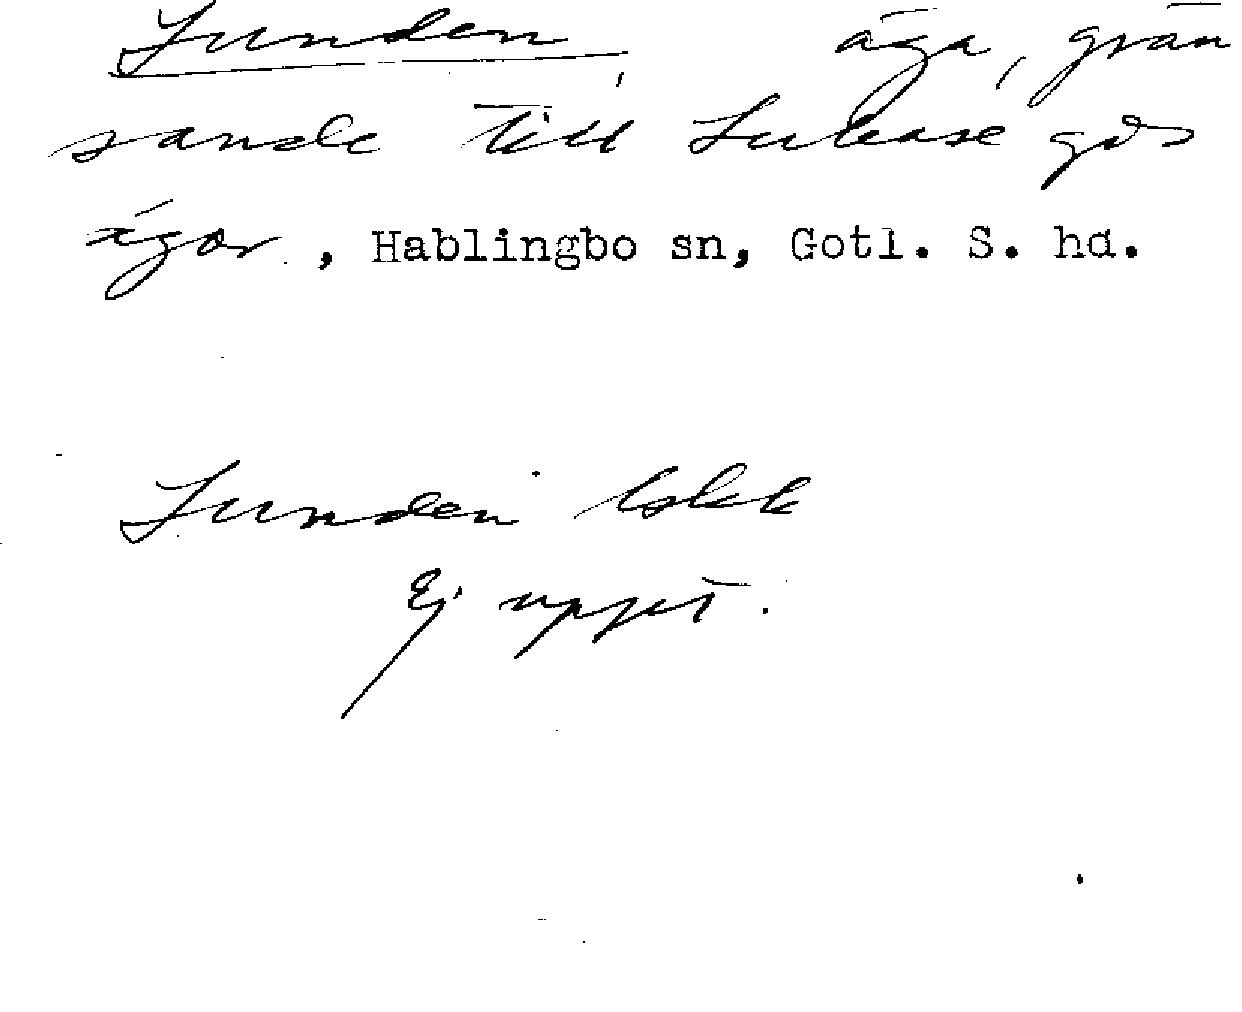 Lunden äga, grän
sande till Lukase gds
ägor, Hablingbo sn, Gotl. S. hd.
Lunden Iskk
Ej uppt.